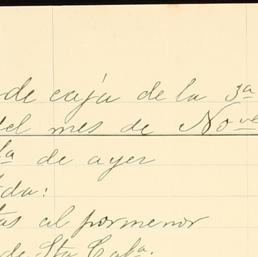 de caja de la 3ª
del mes de Nove
la de ayer
da:
tas al pormenor
de Sta Cala.